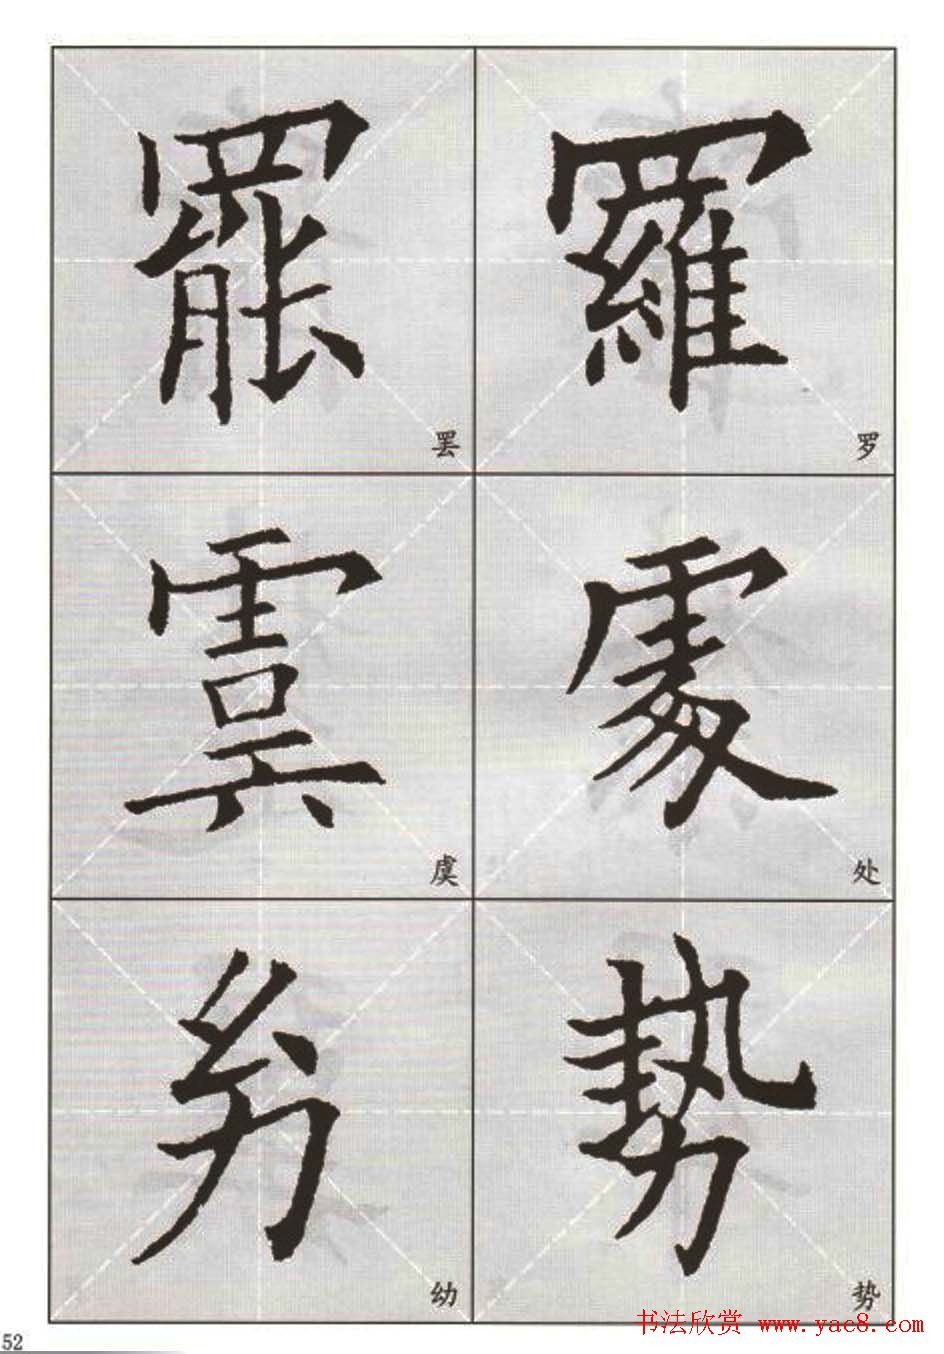 罷 羅
罢 罗
雲 處
虞 处
㓜 勢
幼 势
52
书法欣赏 www.yac8.com